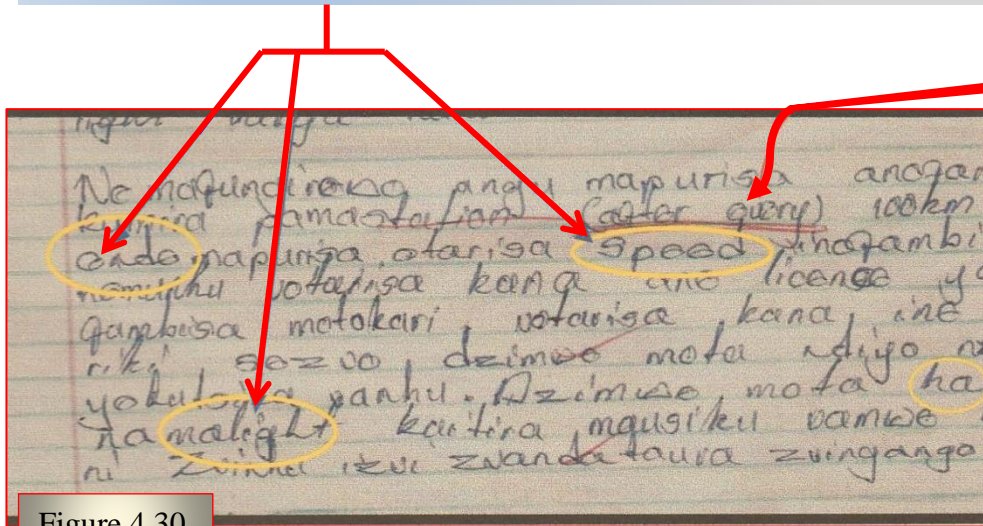 Nemafungireng angu mapurisa
kumira pamastation (after query) 100km
ende mapurisa otarisa speed inofambi
nomunhu votarisa kana ane licence
motokari, votarisa kana ine
sezvo, dzimwe mota ndiyo
vanhu. Dzimwe mota ha
na malight kuitira mausiku vamwe
ni zvinhu izvi zvandataura zvingango
Figure 4.30